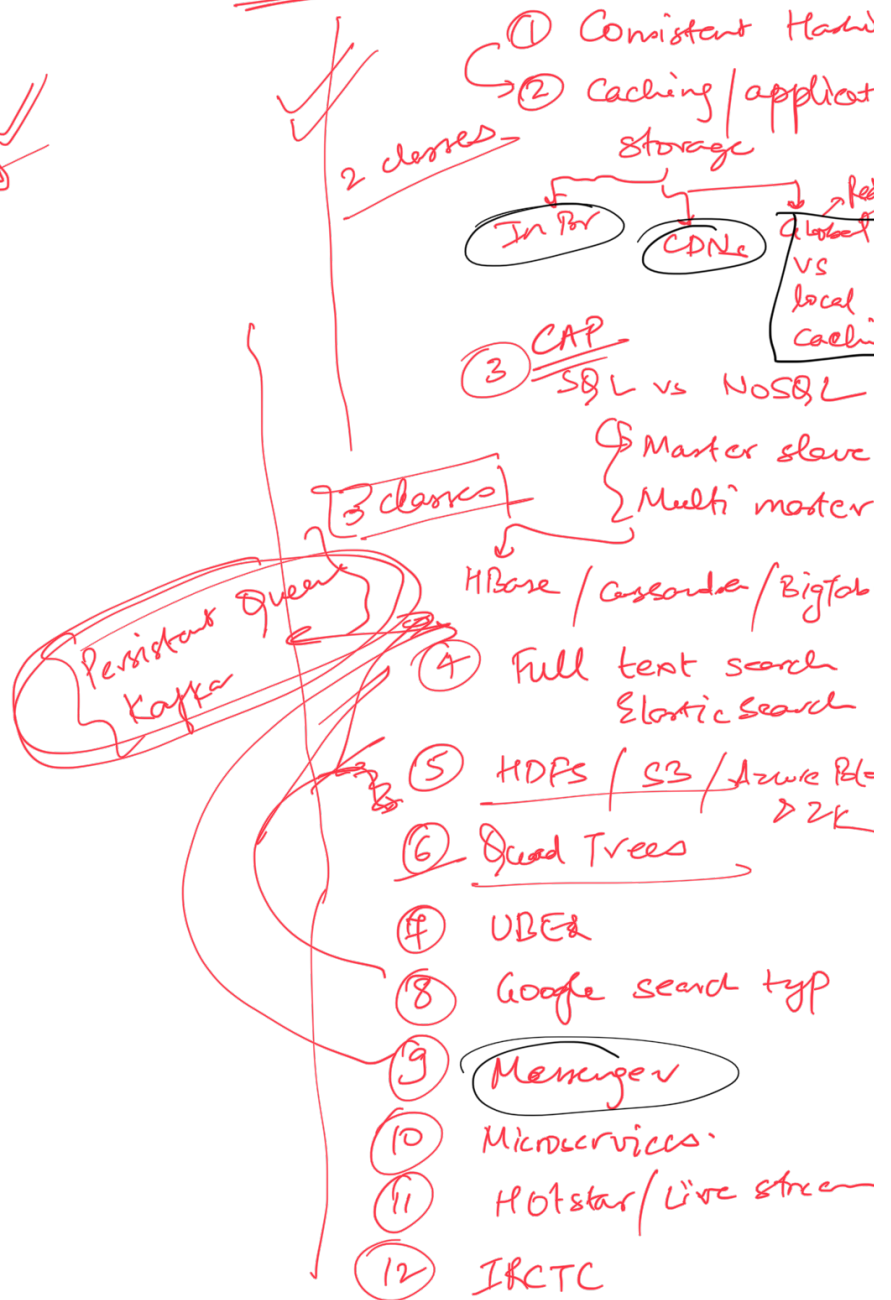 ① Consistent Hashi
② Caching / applicat
storage
2 classes
In Br
CDNs
Global
vs
local
Cachi
③ CAP
SQL vs NoSQL
Master slave
Multi master
3 classes
HBase / Cassandra / BigTab
Persistent Queue
Kafka
④ Full text search
Elastic Search
⑤ HDFS / S3 / Azure
⑥ Quad Trees
⑦ UBER
⑧ Google search typ
⑨ Messenger
⑩ Microservices.
⑪ Hotstar / Live stream
⑫ IRCTC